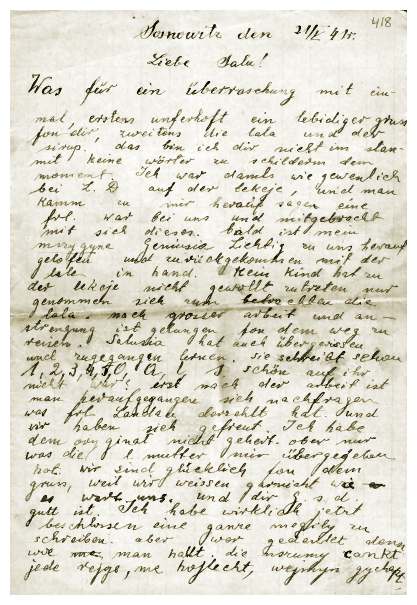 418
Sosnowitz den 21/I 41r.
Liebe Sala!
Was für ein überraschung mit ein-
mal, erstens unferhoft ein lebidiger gruss
fon dir, zweitens die lala und der
sirup, das bin ich dir nicht im stan-
mit keine wörter zu schildern dem
moment. Ich war damls wie gewenlich
bei L.D auf der lekcje, und man
kamm zu mir herauf sagen eine
frl. war bei uns und mitgebracht
mit sich dieses. bald ist mein
Geniusia zu uns herauf
gelofen und zurückgekommen mit der
lale in hand. Kein Kind hat zu
der lekcje nicht gewollt zutreten nur
genommen sich zum betrachten die
lala. nach grosser arbeit und an-
strengung ist gelungen fon dem weg zu
reisen. Salusia hat auch übergerissen
und zugegangen lernen. sie schreibt schon
1, 2, 3, 4, 5, 0, A, I, S schön auf ihr
nicht war? erst nach der arbeit ist
man heraufgegangen sich nachfragen
was frl. Landau derzehlt hat. und
wir haben sich gefreut. Ich habe
dem oryginal nicht gehert. ober nur
was die l. mutter mir übergegeben
hot. wir sind glücklich fon dem
gruss, weil wir weissen garnicht wie
es und dir G.s.d.
gutt ist. Ich habe wirklich jetzt
beschlossen eine ganze megily zu
schreiben. aber wor gedenkt
wie man hallt. die
jede